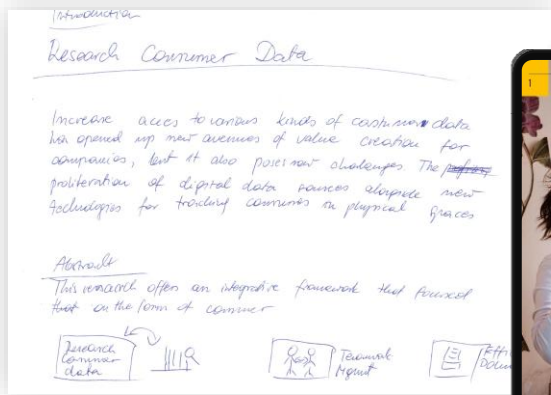 Introduction
Research Consumer Data
Increase acces to various kinds of costumer data
has opened up new avenues of value creation for
companies, but it also poses new challenges. The
proliferation of digital data sources alongside new
technologies for tracking consumers in physical spaces
Abstract
This research offers an integrative framework that focused
that on the form of
Research
consumer
data
Teamwork
Mgmt
1